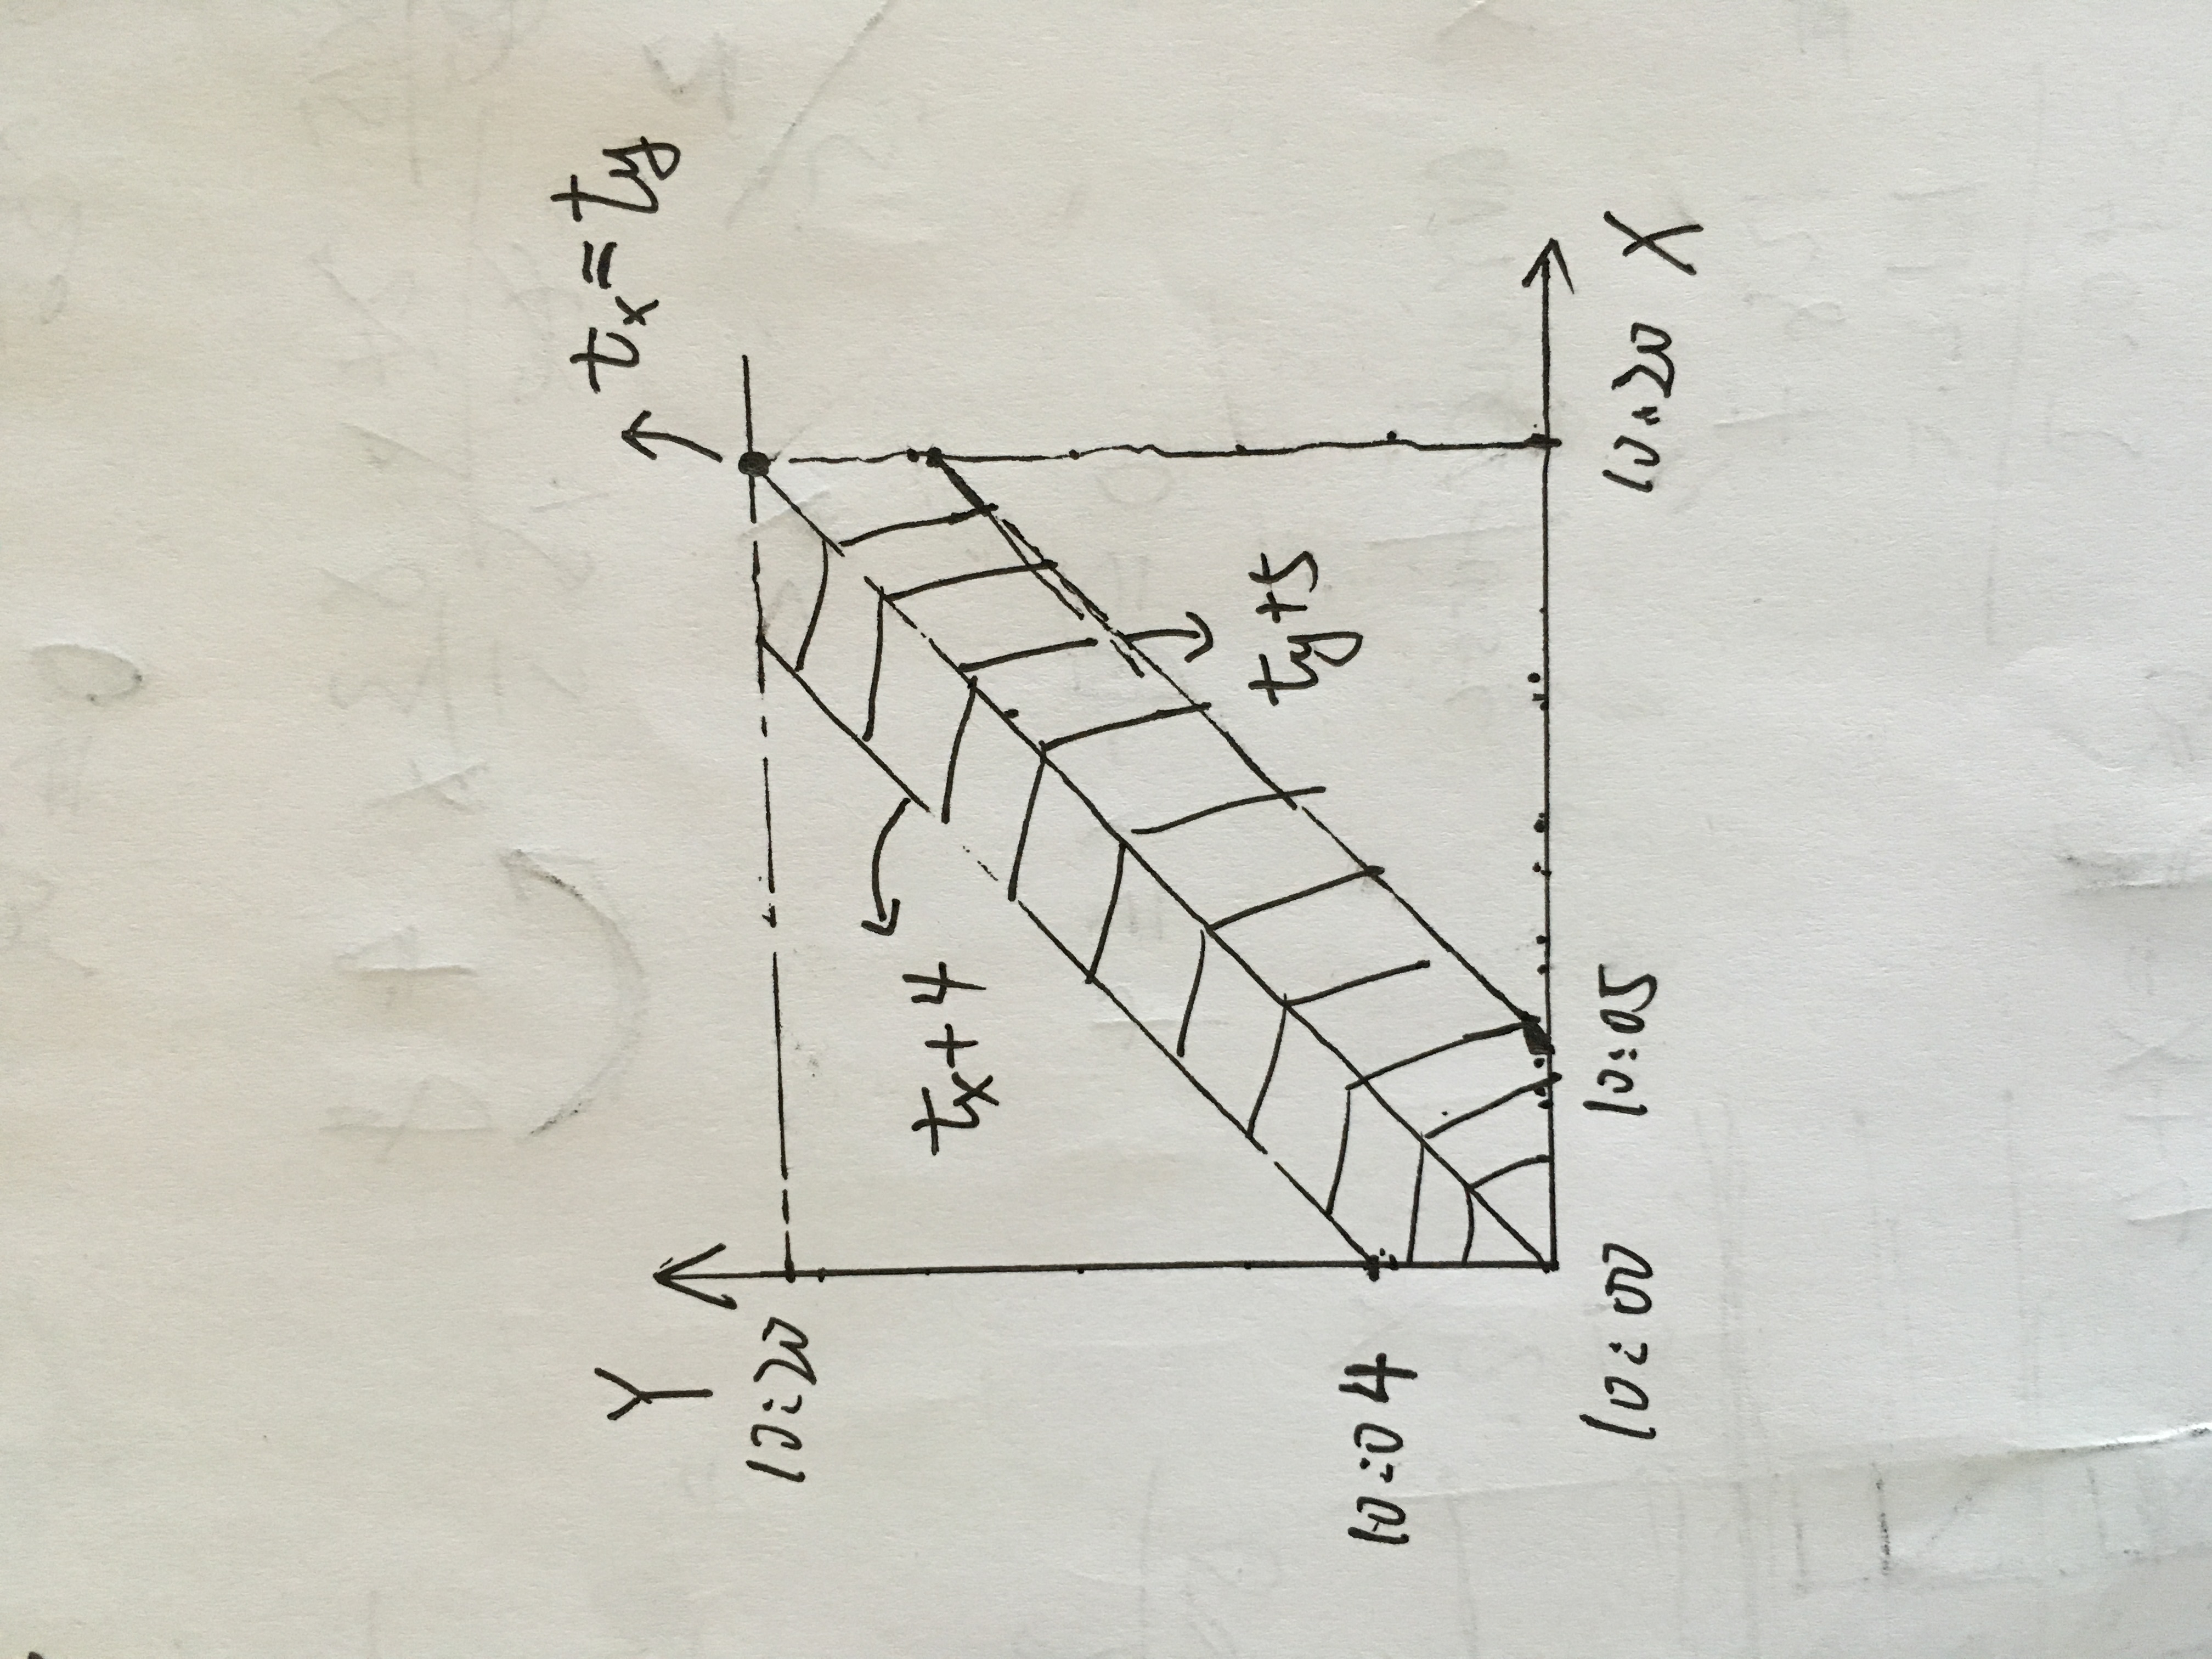 tx=ty
Y
10:20
tx+4
ty+5
10:04
10:00
10:05
10:20
X